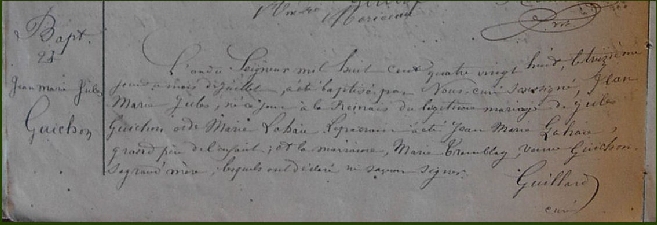 Bapt.
21
Jean Marie Jules
Guichon
L'an du Seigneur mil huit cent quatre vingt huit, le treizième
jour du mois de juillet, a été baptisé par Nous curé soussigné, Jean
Marie Jules, né ce jour à la du légitime mariage de Jules
Guichon et de Marie Lahaie Le parrain a été Jean Marie Lahaie,
grand père de l'enfant ; Et la marraine, Marie Tremblay, veuve Guichon
sa grand mère, lesquels ont déclaré ne savoir signer
Guillard
curé